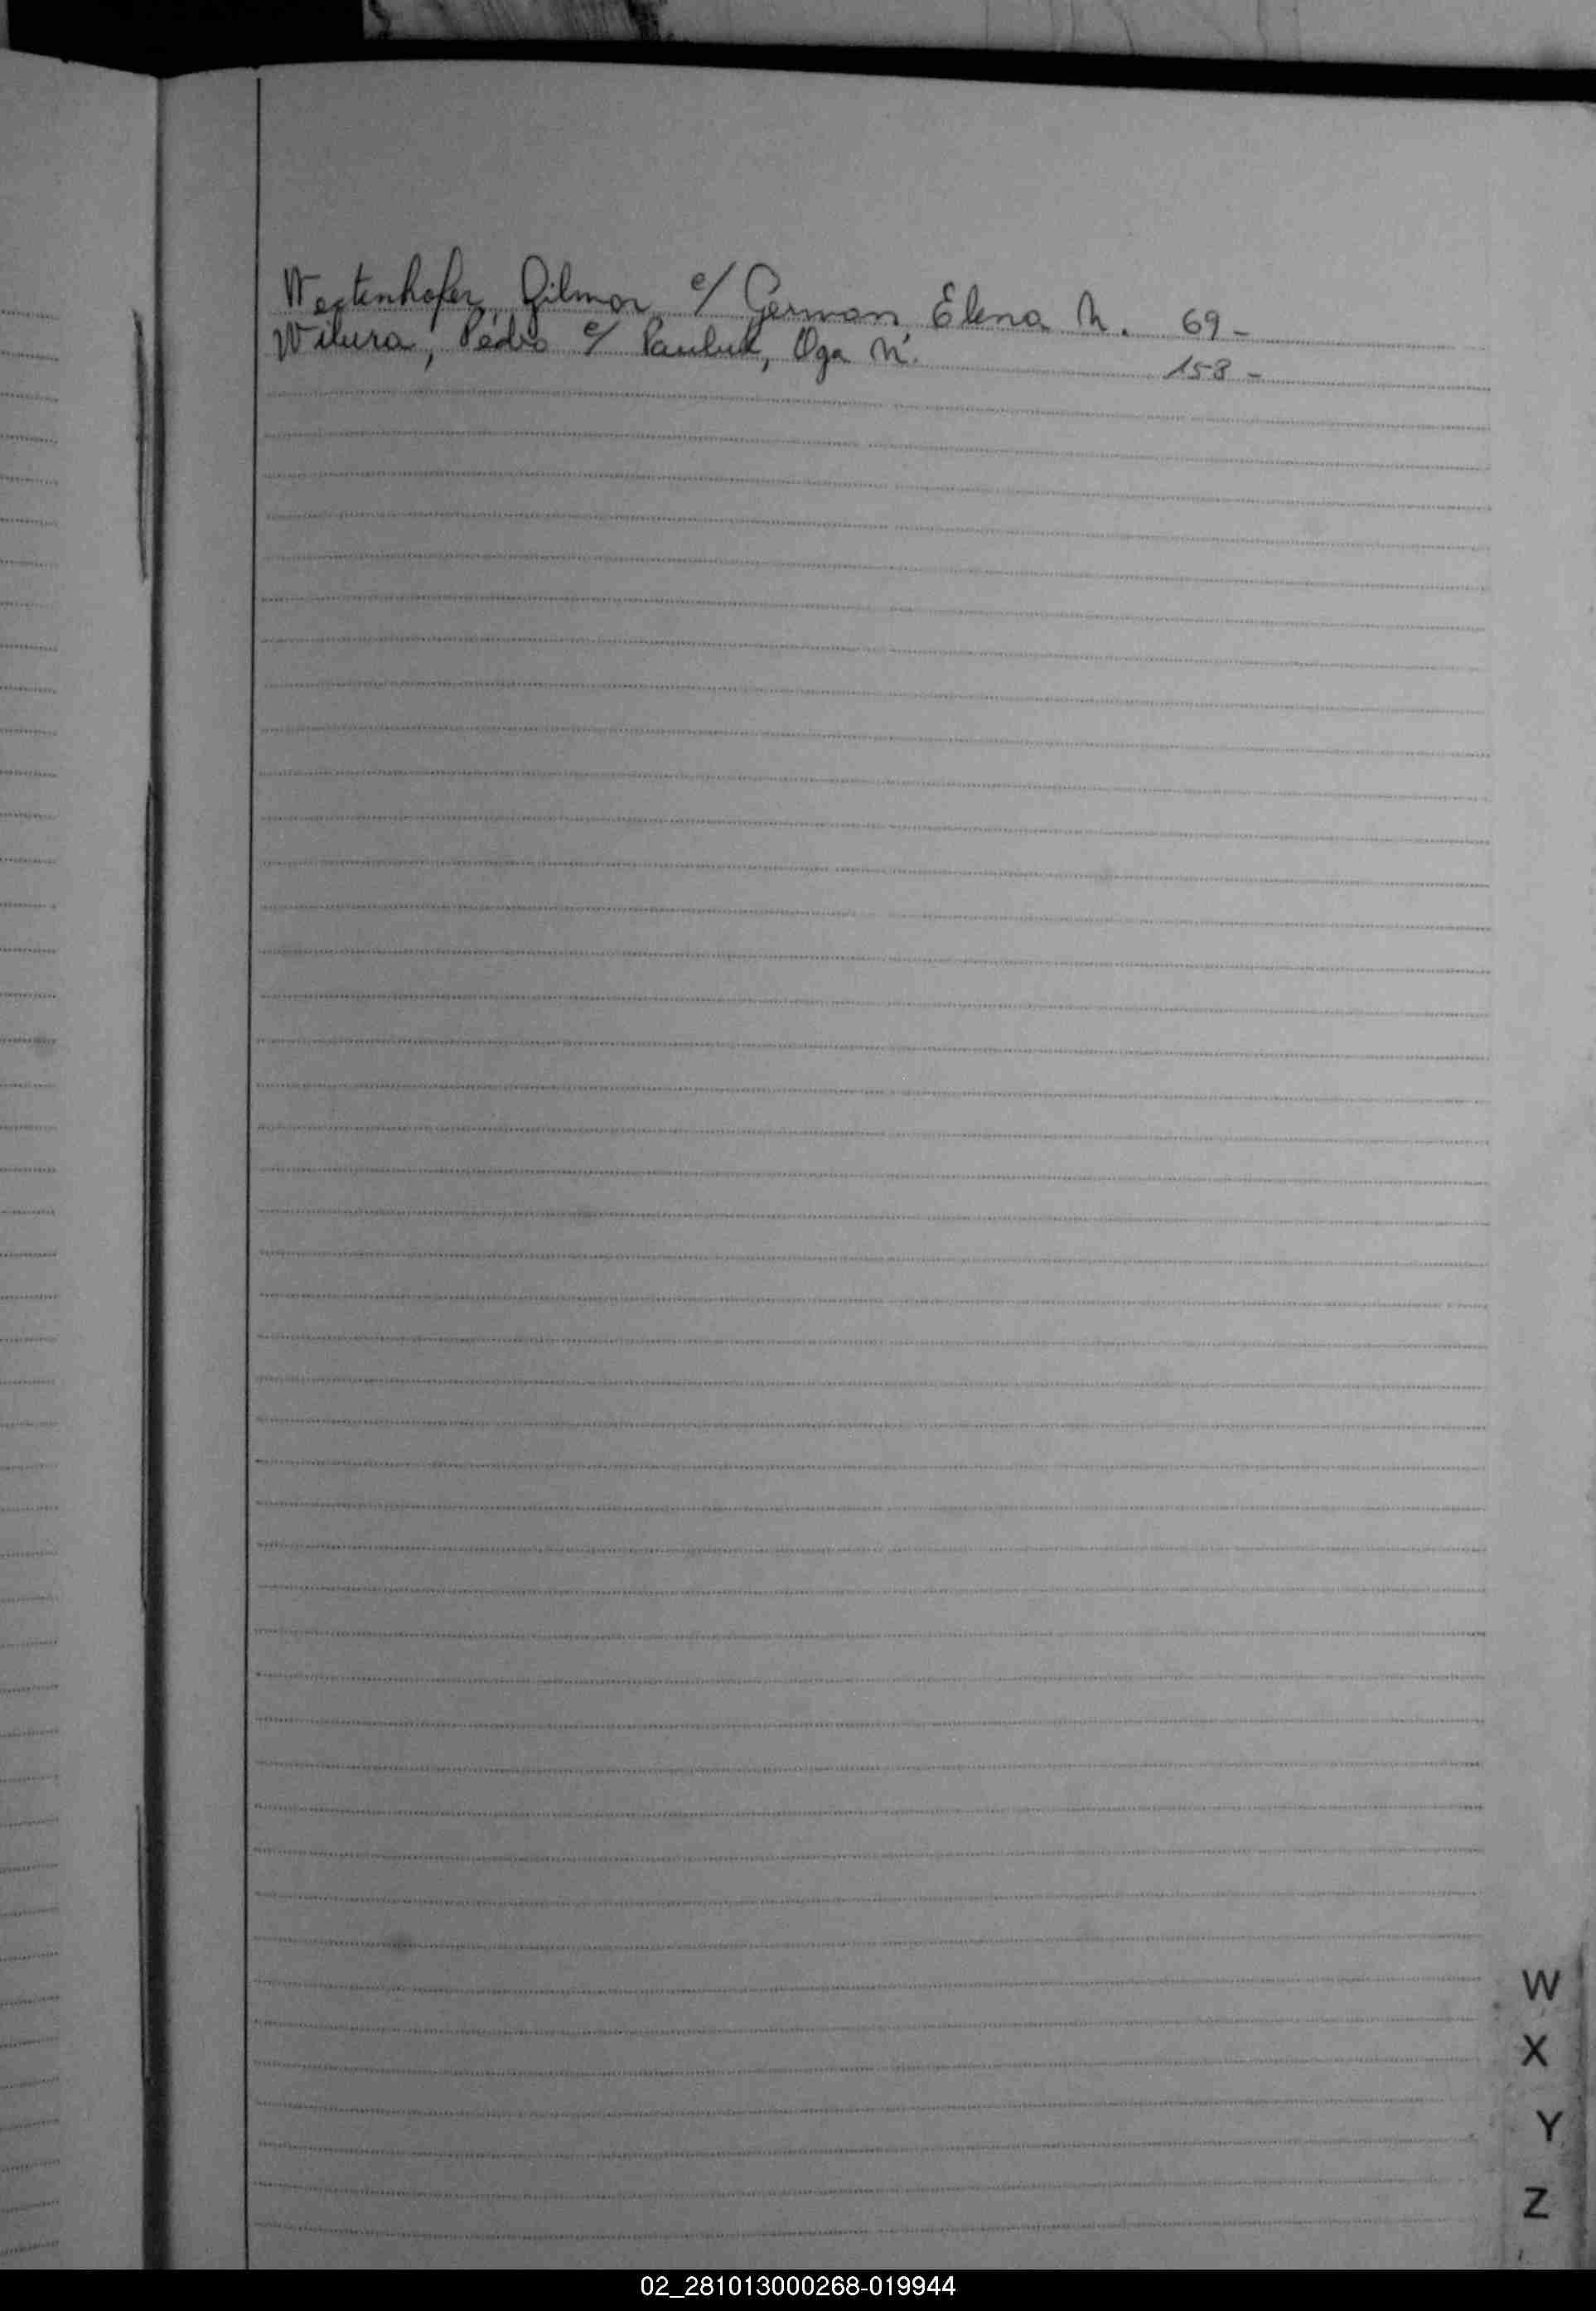 Westenhofer, Gilmor c/ German, Elena N. 69 -
Witura, Pedro c/ Pauluk, Oga N. 158 -
W
X
Y
Z
02_281013000268-019944